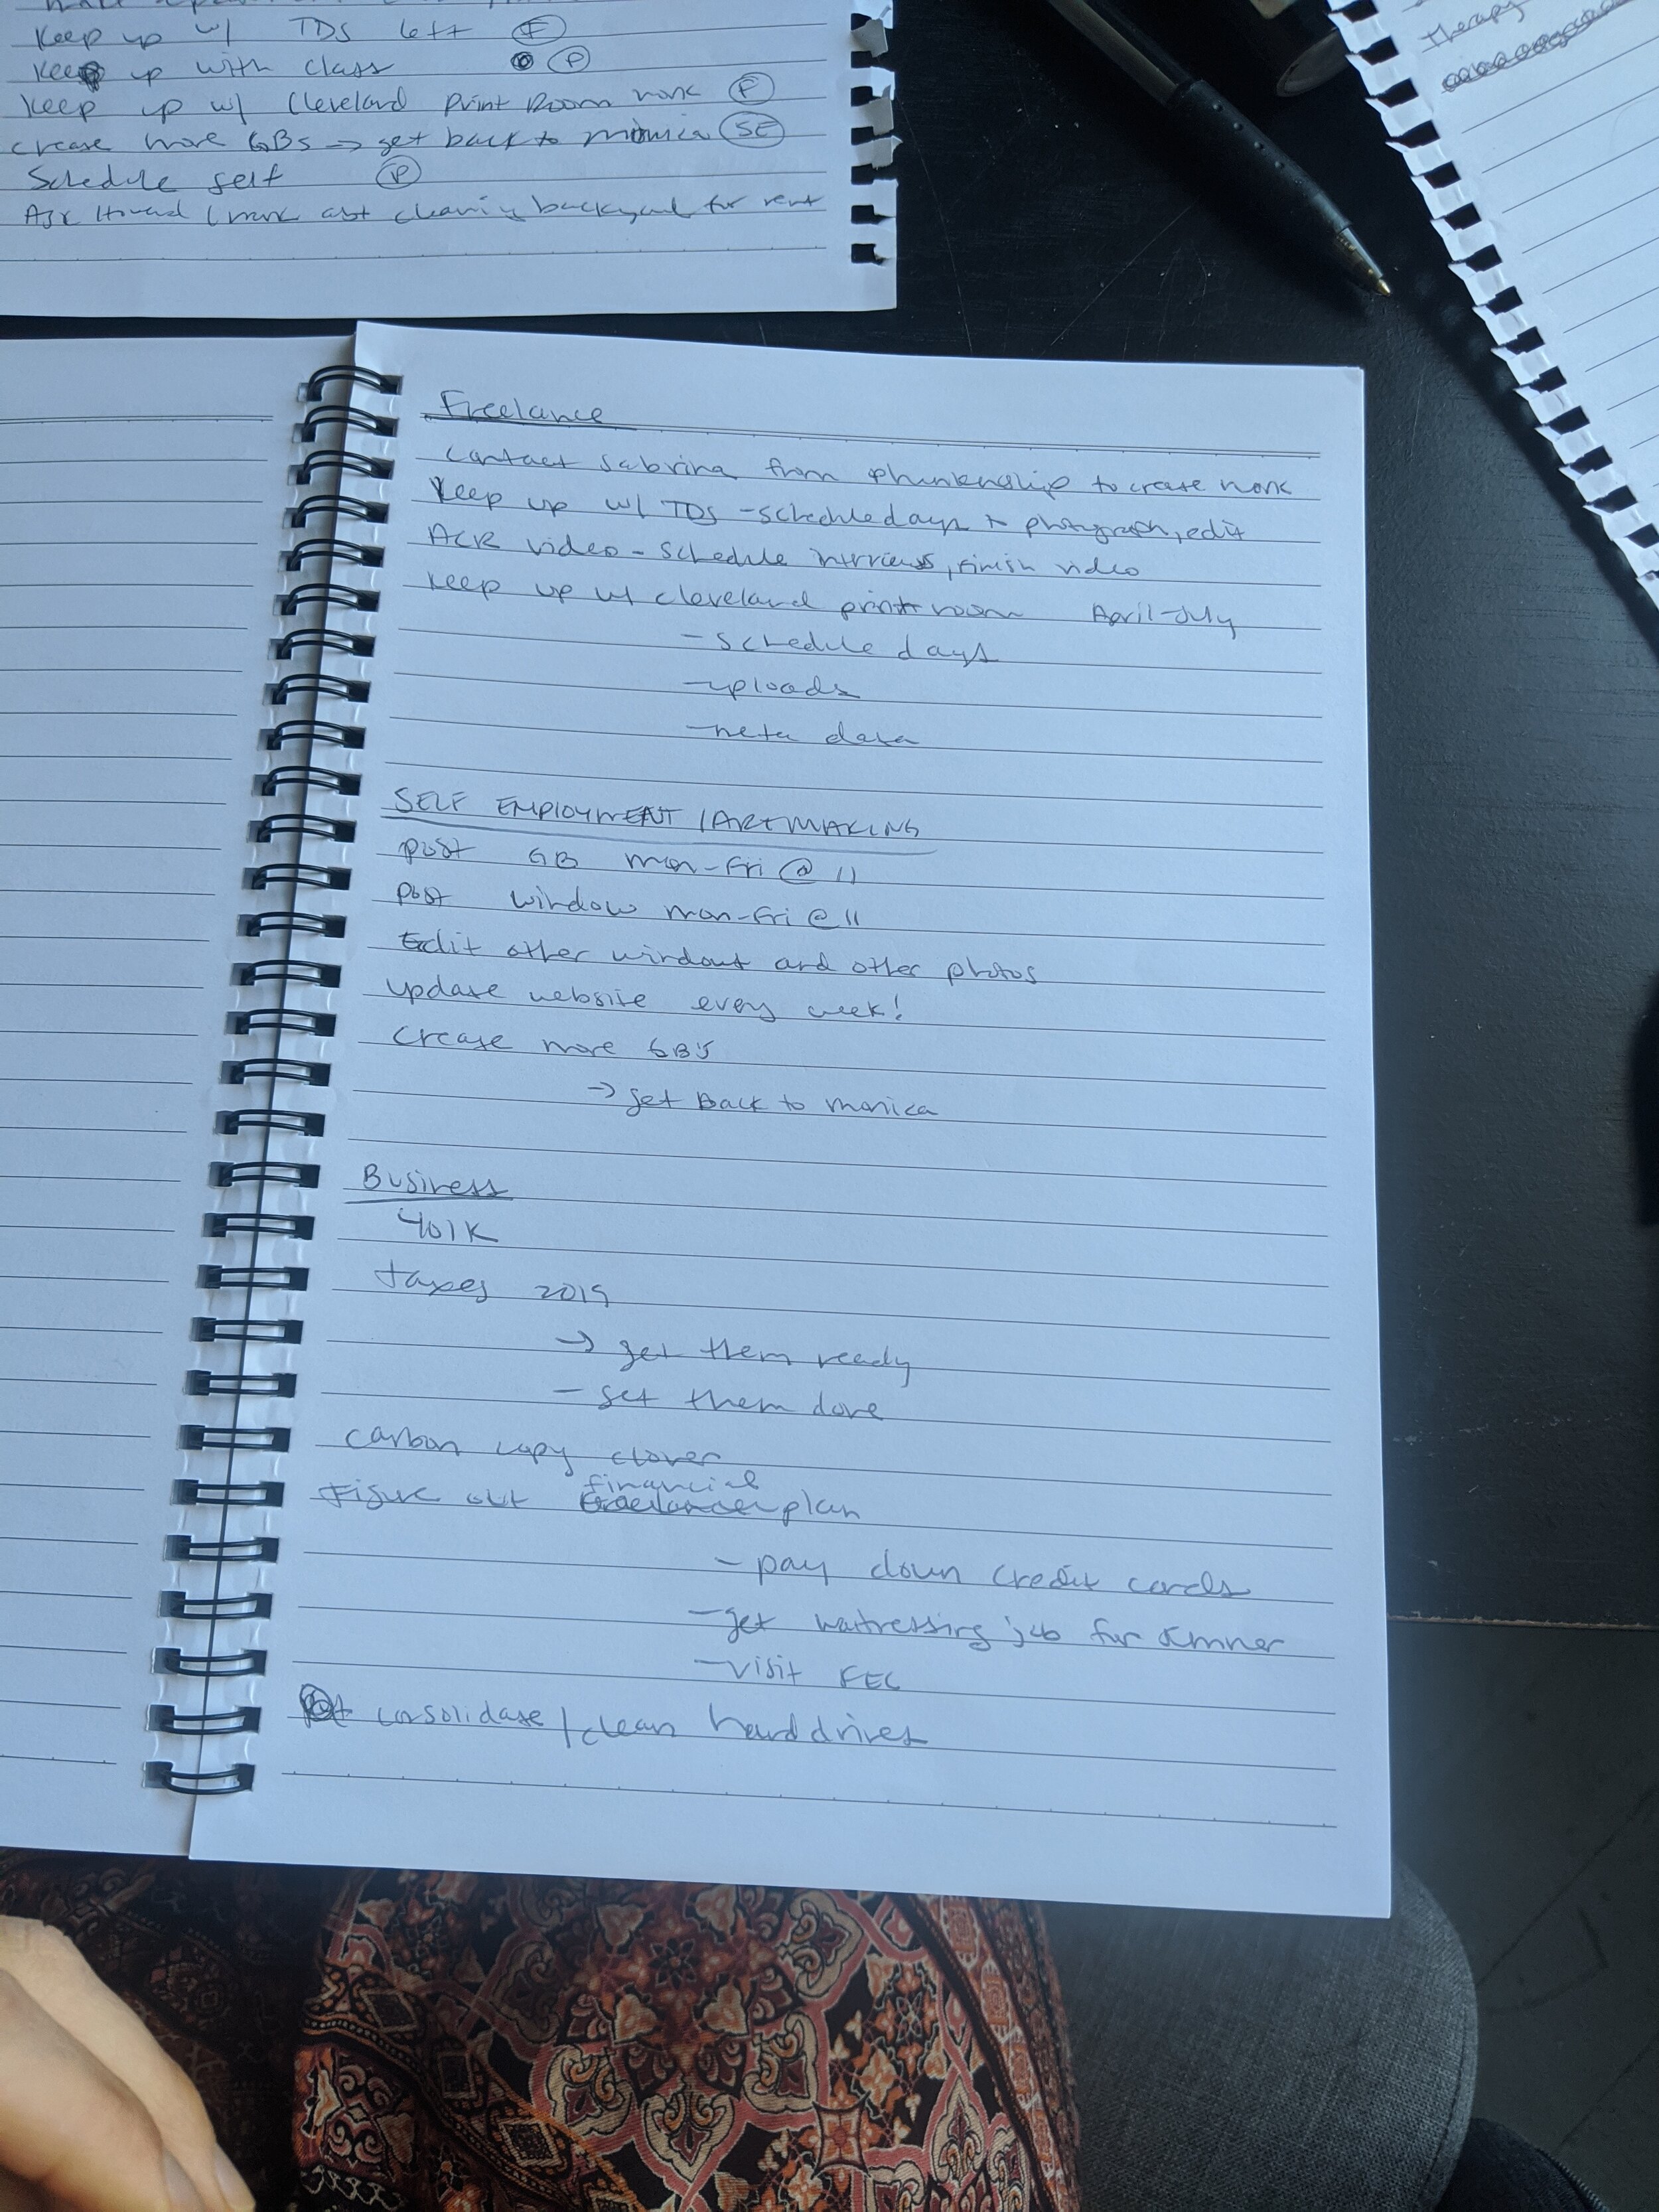 Keep up w/ TDS left F
Keep up with class P
Keep up w/ Cleveland Print Room work F
create more GBs → get back to monica SE
Schedule self P
Ask cleaning backyard for rent
therapy
Freelance
contact sabrina from phunkenship to create work
Keep up w/ TDS - schedule days to photograph, edit
ACR video - schedule interviews, finish video
keep up w/ cleveland print room April-July
- schedule days
- uploads
- meta data
SELF EMPLOYMENT / ARTMAKING
post GB mon-Fri @ 11
post window mon-Fri @ 11
Edit other and other photos
update website every week!
create more GB's
→ get back to monica
Business
401K
taxes 2019
→ get them ready
- get them done
carbon copy cloner
Figure out financial plan
- pay down credit cards
- get waitressing job for summer
- visit FEC
consolidate / clean hard drives